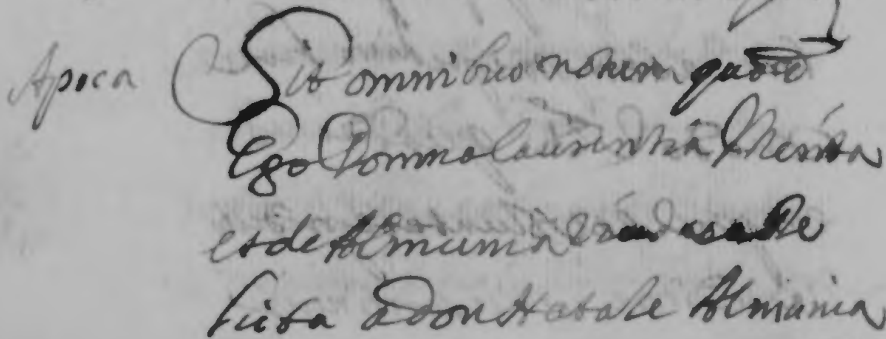 Apoca Sit omnibus notum quod
Ego Domna Laurentia Merita
et de Almunia vidua
licta a don Natale Almunia